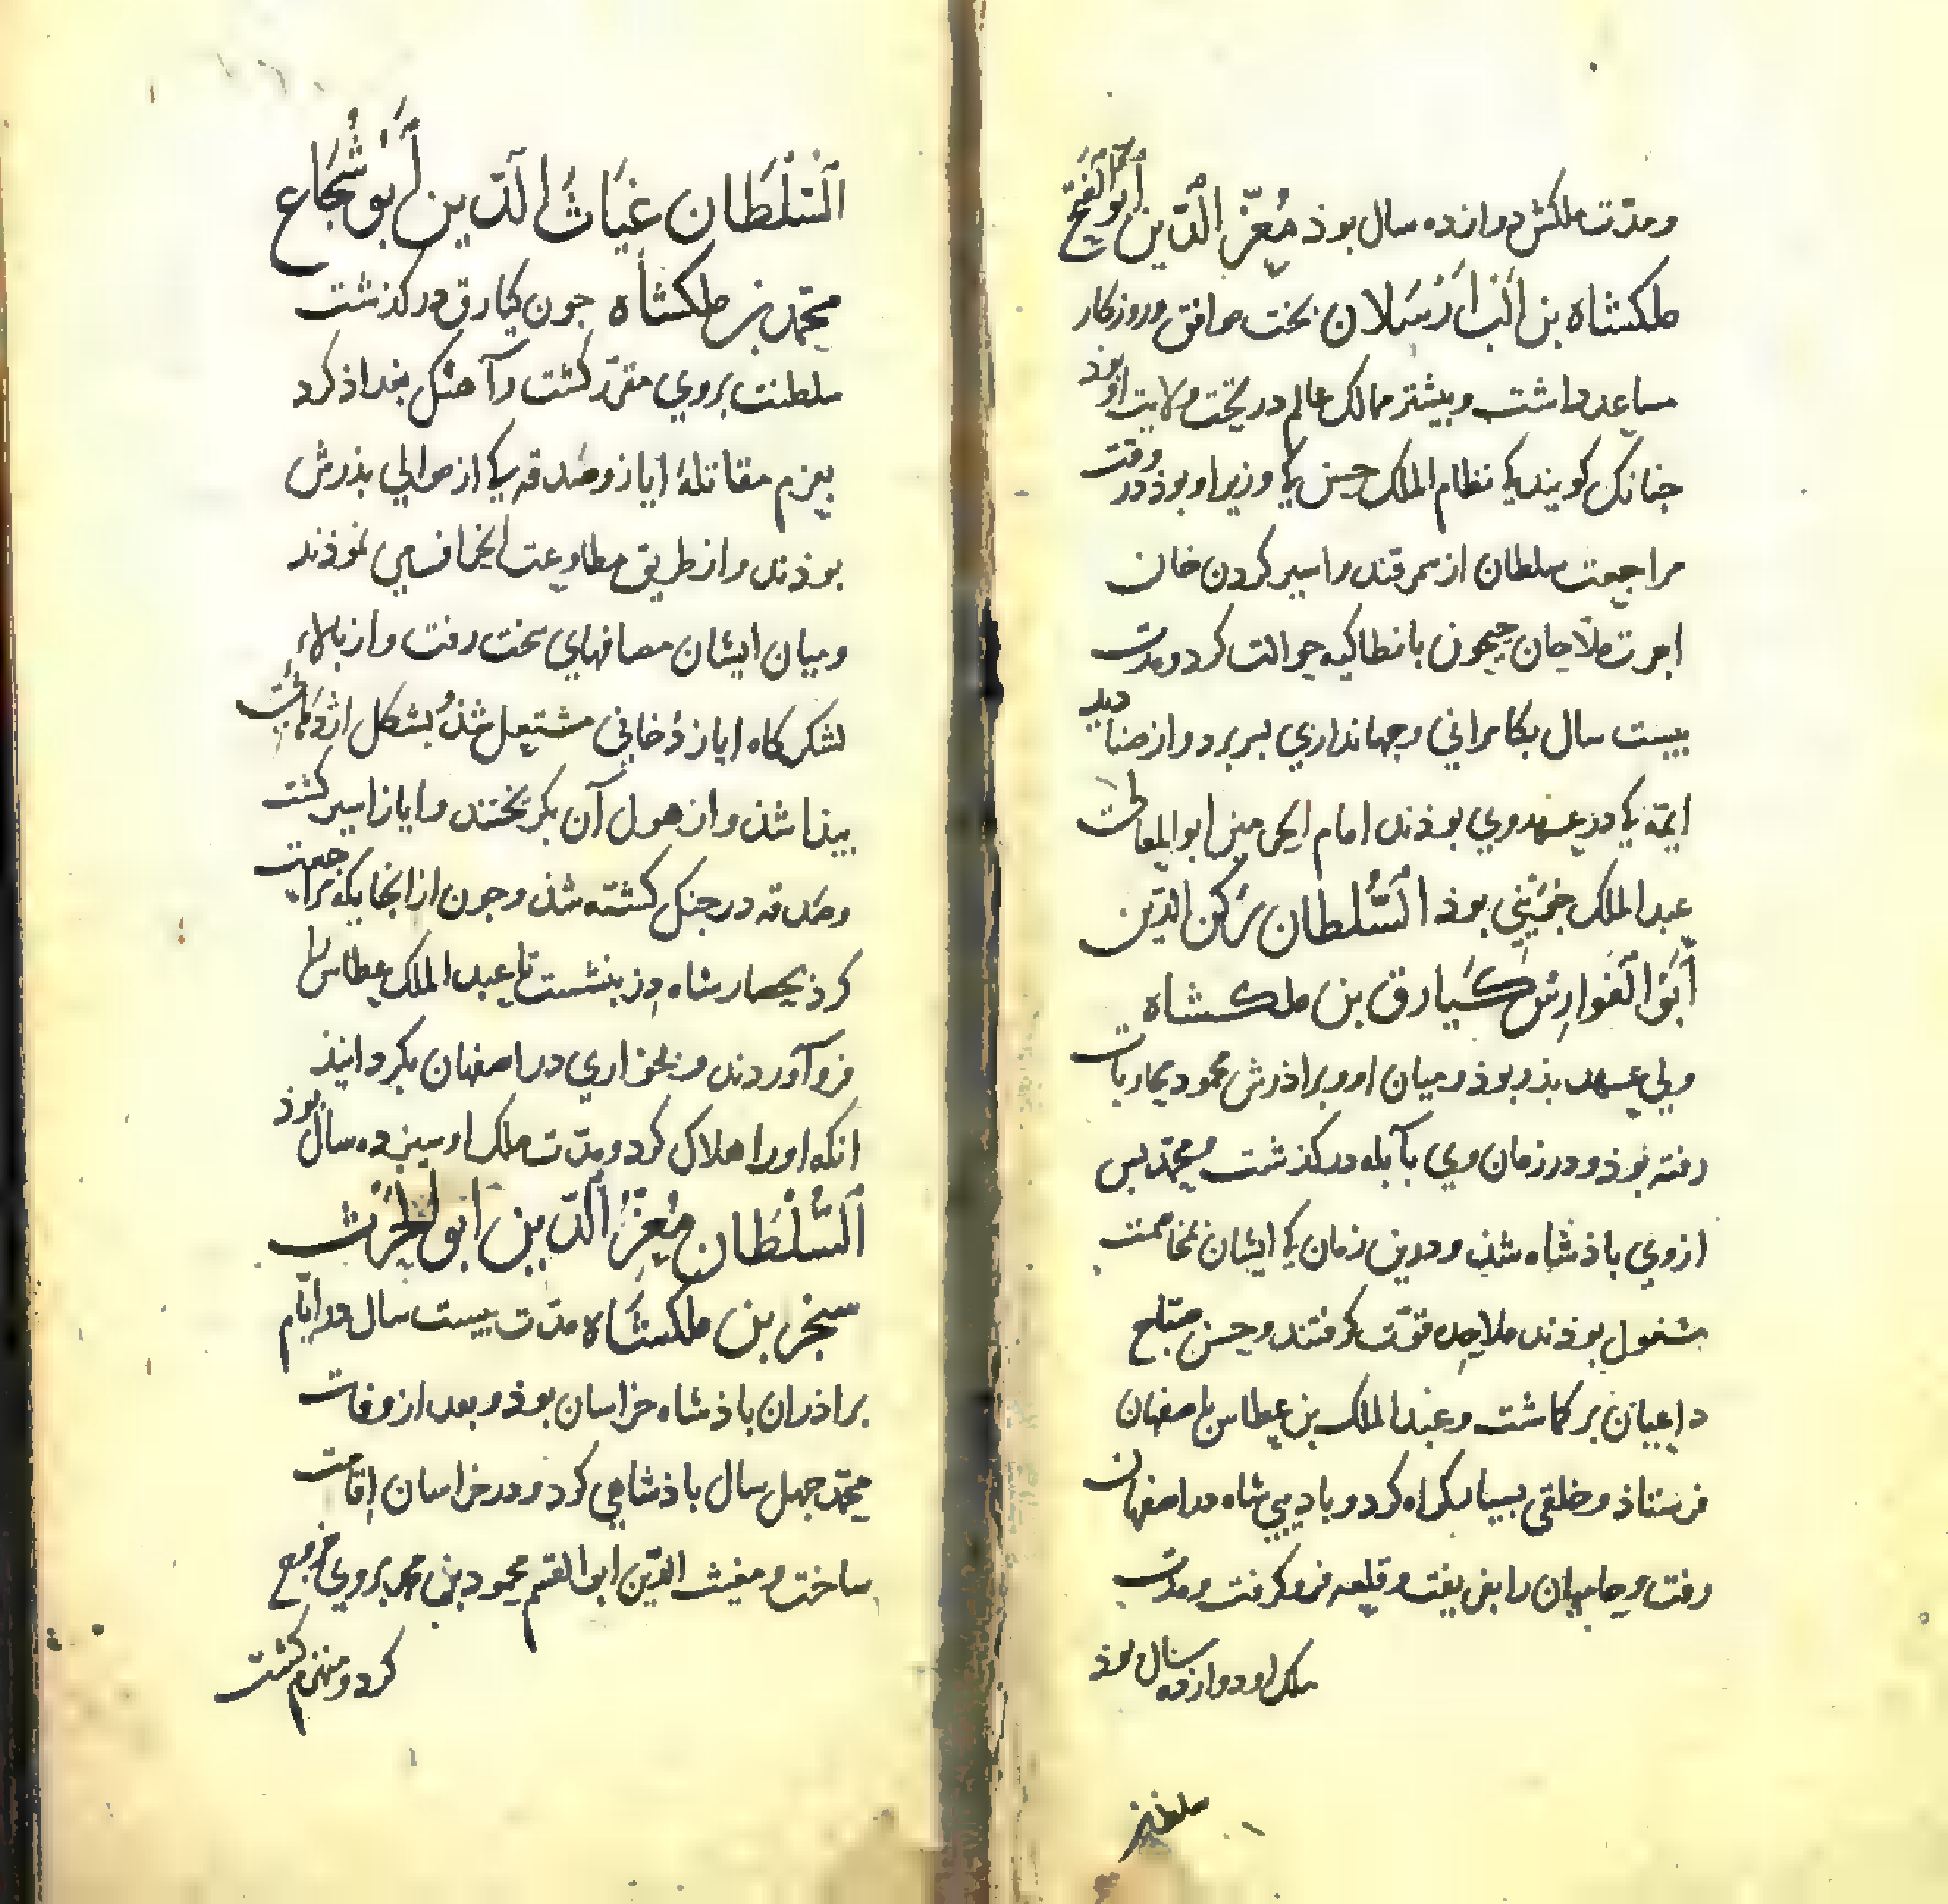 ومدّت ملکش دوازده سال بوذ مُعِزّ الدّین أبو الفتح
ملکشاه بن الب ارسلان بخت موافق وروزکار
مساعد داشت وبیشتر ممالک عالم در تحت ولایت او بوذ
جنانک کویند کی نظام الملک حسن کی وزیر او بوذ در وقت
مراجعت سلطان از سمرقند واسیر کردن خان
اجرت ملّاحان جیحون بانطاکیه حوالت کرد ومدت
بیست سال بکامرانی وجهانداری بسر برد واز صنادید
ایمّه کی در عهد وی بوذند امام الحرمین ابو المعالی
عبد الملک جوینی بوذ السّلطان رکن الدّین
أبو الفوارس کیارق بن ملکشاه
ولی عهد بذر بوذ ومیان او وبراذرش محمود محاربات
رفته بوذ ودر زمان وی بآبله درکذشت ومحمّد بس
ازوی باذشاه شذ ودرین زمان کی ایشان بمخاصمت
مشغول بوذند ملاحده قوّت کرفتند وحسن صبّاح
داعیان برکماشت وعبد الملک بن عطاس باصفهان
فرستاذ وخلقی بسیار کمراه کرد وبا دیهی شاه در اصفهان
رفت وحامیان را بفریفت وقلعه فرو کرفت ومدت
ملک او دوازده سال بوذ
سلطان
السّلطان غیاث الدّین أبو شجاع
محمّد بن ملکشاه جون کیارق درکذشت
سلطنت بروی مقرّر کشت وآهنک بغداذ کرد
بعزم مقاتلۀ ایاز وصدقه کی از موالی بذرش
بوذند واز طریق مطاوعت انحراف می نموذند
ومیان ایشان مصافهای سخت رفت واز بالاء
لشکرکاه ایاز دخانی مشتعل شذ وبشکل اژدهائی
بیذا شذ واز هول آن بکریختند وایاز اسیر کشت
وصدقه در جنک کشته شذ وجون از انجایکه مراجعت
کرذ بحصار شاه دز بنشست تا عبد الملک عطاس را
فرو آوردند وبخواری در اصفهان بکردانیذ
انکه اورا هلاک کرد ومدّت ملک او سیزده سال بوذ
السّلطان مُعِزّ الدّین ابو الحرث
سنجر بن ملکشاه مدّت بیست سال در ایّام
براذران باذشاه خراسان بوذ وبعد از وفات
محمّد جهل سال باذشاهی کرد ودر خراسان إقامت
ساخت ومغیث الدّین ابو القسم محمود بن محمد بروی خروج
کرد ومنهزم کشت